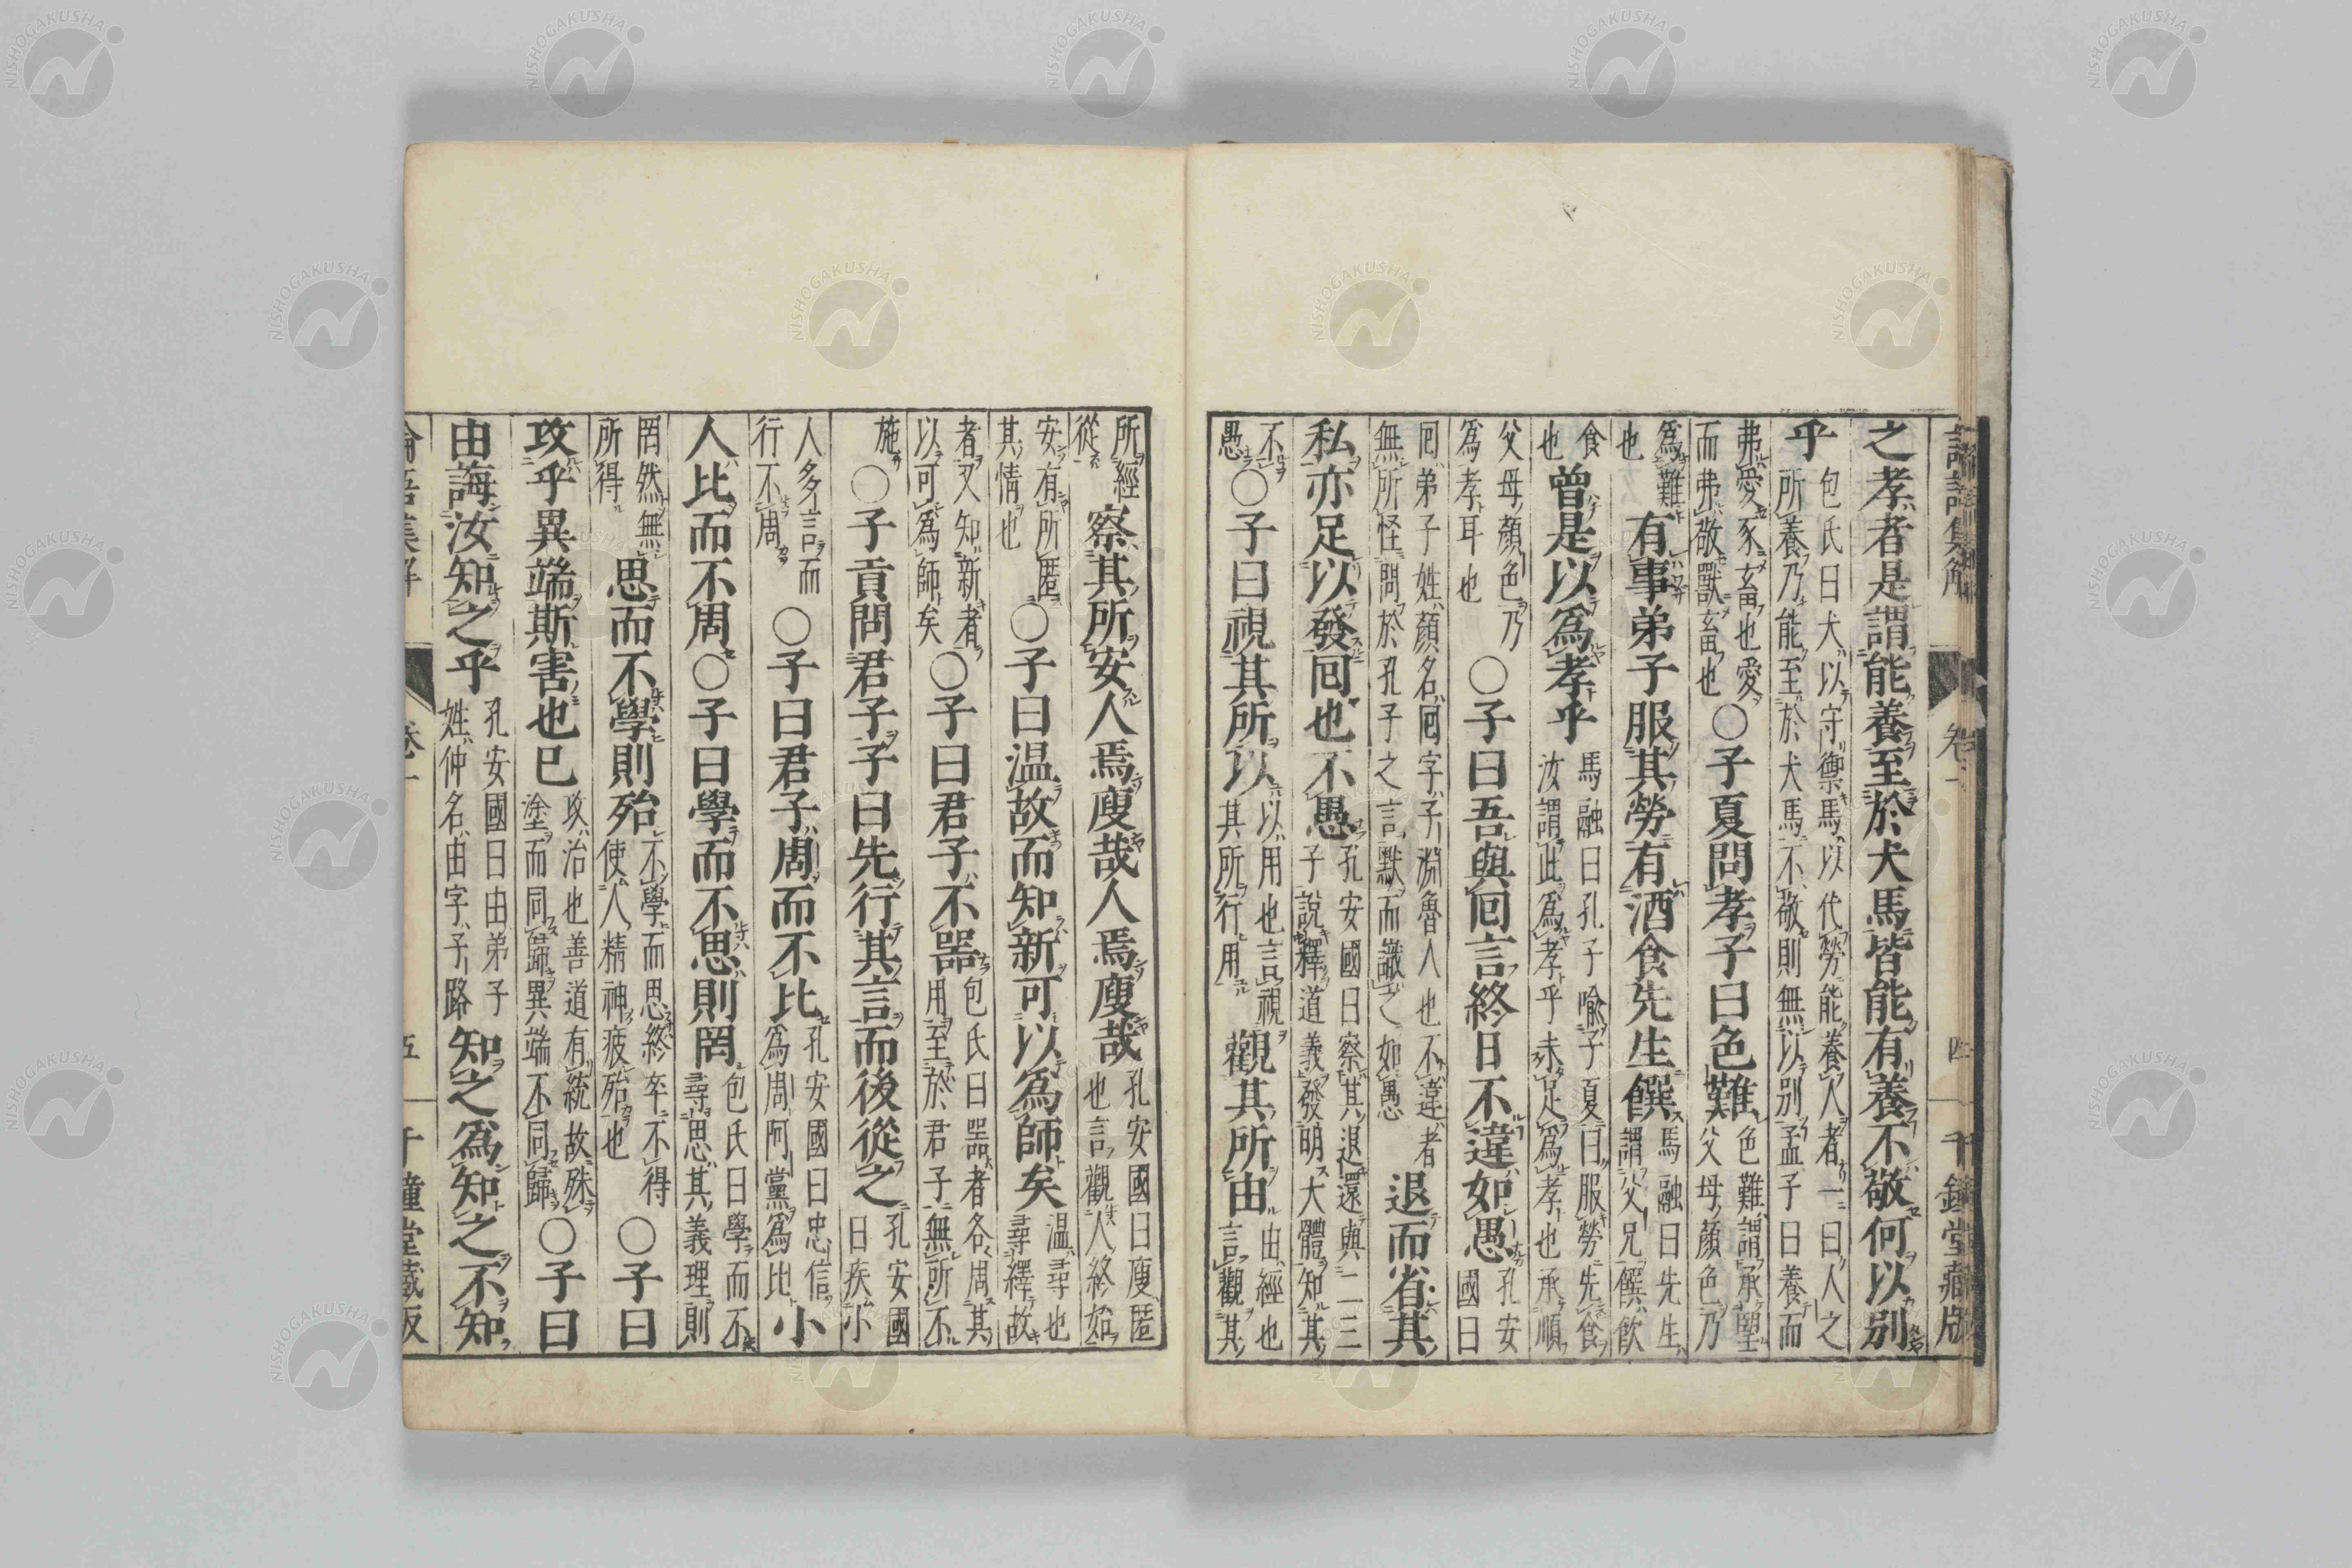 論語集解 卷一 四 千鍾堂藏版
之孝者是謂能養至於犬馬皆能有養不敬何以別
乎包氏曰犬以守禦馬以代勞能養人者一曰人之所養乃能至於犬馬不敬則無以別孟子曰養而
弗愛豕畜也愛而弗敬獸畜也○子夏問孝子曰色難色難謂承望父母顏色乃
爲難也有事弟子服其勞有酒食先生饌馬融曰先生謂父兄饌飲
食也曾是以爲孝乎馬融曰孔子喻子夏曰服勞先食汝謂此爲孝乎未足爲孝也承順
父母顏色乃爲孝耳也○子曰吾與囘言終日不違如愚孔安國曰
囘弟子姓顏名囘字子淵魯人也不違者無所怪問於孔子之言默而識之如愚退而省其
私亦足以發囘也不愚孔安國曰察其退還與二三子說釋道義發明大體知其
不愚○子曰視其所以以用也言視其所行用觀其所由由經也言觀其
所經從察其所安人焉廋哉人焉廋哉孔安國曰廋匿也言觀人終始
安有所匿其情也○子曰温故而知新可以爲師矣温尋也尋繹故
者又知新者以可爲師矣○子曰君子不器包氏曰器者各周其用至於君子無所不
施○子貢問君子子曰先行其言而後從之孔安國曰疾小
人多言而行不周○子曰君子周而不比孔安國曰忠信爲周阿黨爲比小
人比而不周○子曰學而不思則罔包氏曰學而不尋思其義理則
罔然無所得思而不學則殆不學而思終卒不得使人精神疲殆也○子曰
攻乎異端斯害也已攻治也善道有統故殊塗而同歸異端不同歸○子曰
由誨汝知之乎孔安國曰由弟子姓仲名由字子路知之爲知之不知
論語集解 卷一 五 千鍾堂藏版